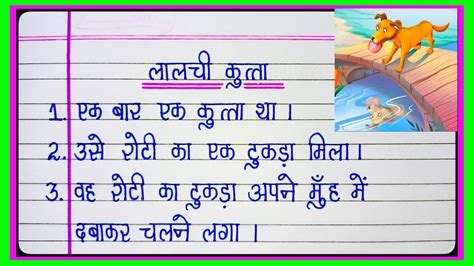 लालची कुत्ता
1. एक बार एक कुत्ता था ।
2. उसे रोटी का एक टुकड़ा मिला ।
3. वह रोटी का टुकड़ा अपने मुँह में
दबाकर चलने लगा ।